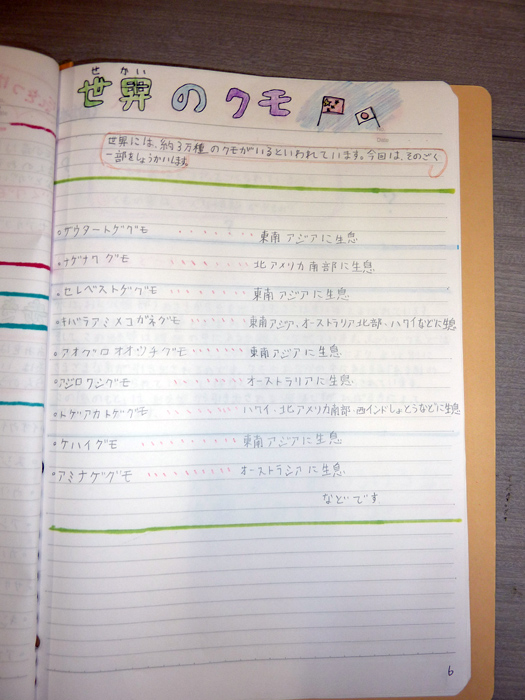 せかい
世界のクモ
世界には、約3万種のクモがいるといわれています。今回は、そのごく
一部をしょうかいします。
・サウタートゲグモ ・・・・・・・ 東南アジアに生息
・ナゲナワグモ ・・・・・・・ 北アメリカ南部に生息
・セレベストゲグモ ・・・・・・・ 東南アジアに生息
・キバラアミメコガネグモ ・・・・・・・ 東南アジア、オーストラリア北部・ハワイなどに生息
・アオグロオオツチグモ ・・・・・・・ 東南アジアに生息
・アジロワシグモ ・・・・・・・ オーストラリアに生息
・トゲアカトゲグモ ・・・・・・・ ハワイ・北アメリカ南部・西インドしょとうなどに生息
・ケハイグモ ・・・・・・・ 東南アジアに生息
・アミナゲグモ ・・・・・・・ オーストラシアに生息
などです
6